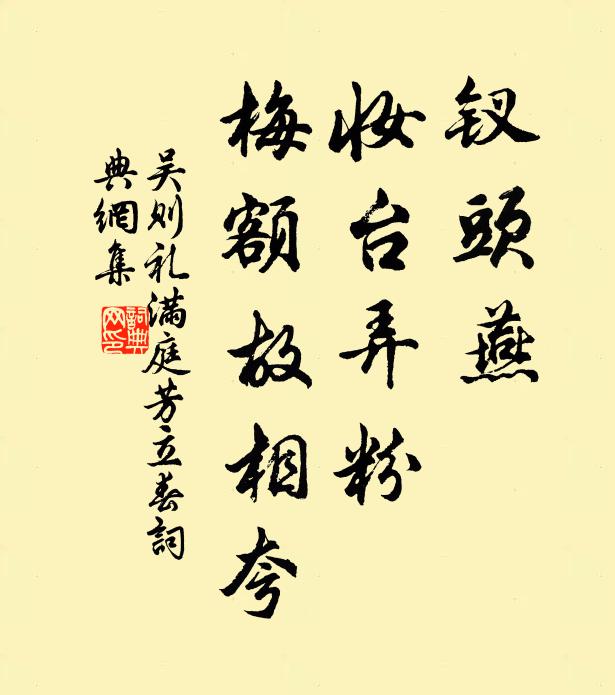 钗頭燕
妆台弄粉
梅額故相夸
吴则礼满庭芳立春詞
典網集
詞典网印